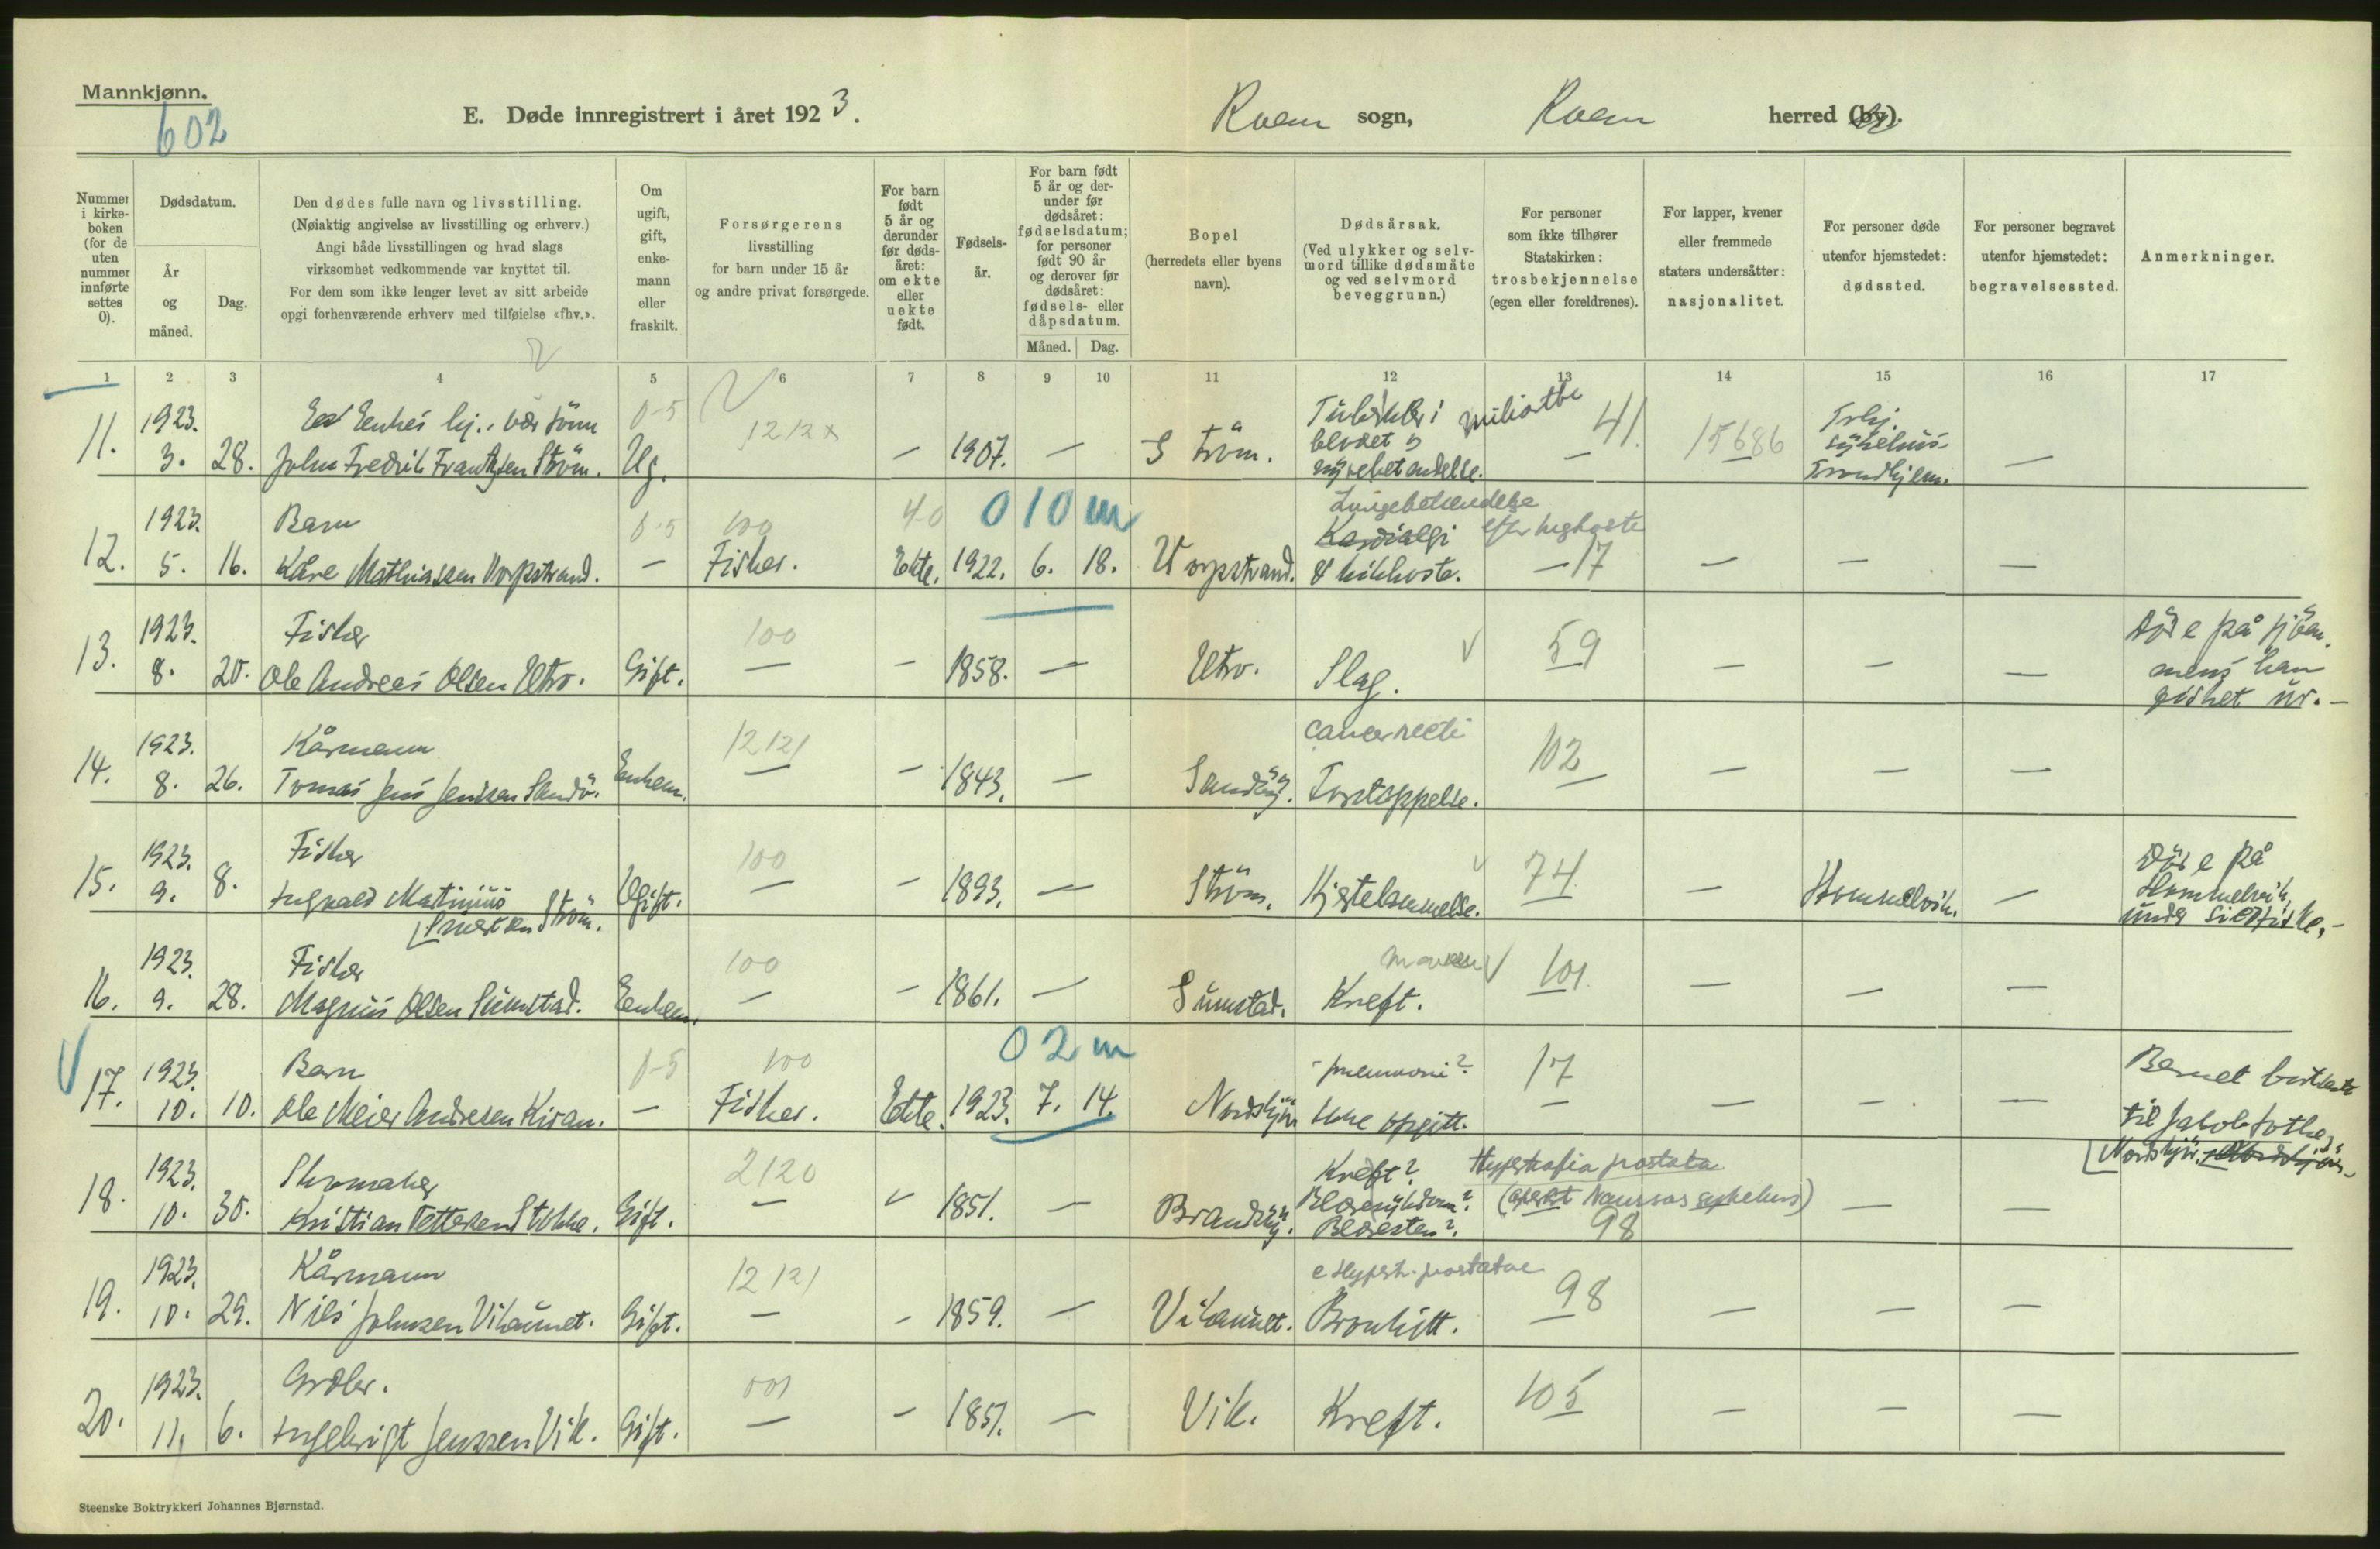 Mannkjønn.
602
E. Døde innregistrert i året 1923.
Roan sogn, Roan herred (by).
Nummer i kirkeboken (for de uten nummer innførte settes 0).
Dødsdatum.
År og måned.
Dag.
Den dødes fulle navn og livsstilling.
(Nøiaktig angivelse av livsstilling og erhverv.)
Angi både livsstillingen og hvad slags
virksomhet vedkommende var knyttet til.
For dem som ikke lenger levet av sitt arbeide
opgi forhenværende erhverv med tilføielse «fhv.».
Om ugift, gift, enkemann eller fraskilt.
Forsørgerens
livsstilling
for barn under 15 år
og andre privat forsørgede.
For barn født 5 år og derunder før dødsåret: om ekte eller uekte født.
Fødselsår.
For barn født 5 år og derunder før dødsåret: fødselsdatum; for personer født 90 år og derover før dødsåret: fødsels- eller dåpsdatum.
Måned. Dag.
Bopel
(herredets eller byens
navn).
Dødsårsak.
(Ved ulykker og selvmord tillike dødsmåte og ved selvmord beveggrunn.)
For personer
som ikke tilhører
Statskirken:
trosbekjennelse
(egen eller foreldrenes).
For lapper, kvener
eller fremmede
staters undersåtter:
nasjonalitet.
For personer døde
utenfor hjemstedet:
dødssted.
For personer begravet
utenfor hjemstedet:
begravelsessted.
Anmerkninger.
1 2 3 4 5 6 7 8 9 10 11 12 13 14 15 16 17
11. 1923. 3. 28.
John Fredrik Frantzen Ström. Ug. 0-5 1212x — 1907. — Ström.
Tuberkler i miliartbc
blodet &
nyrebetendelse. — 41. 15686
sykehus
Trondhjem. —
12. 1923. 5. 16. Barn
Kåre Mathiassen Vorpstrand. — 0-5 100 Fisker. 40 Ekte. 1922. 6. 18. 010 m Vorpstrand.
Lungebetændelse
Kardialgi efter kighoste
& kikhoste. — 17 — — —
13. 1923. 8. 20. Fisker
Ole Andreas Olsen Utro. Gift. 100 — — 1858. — Utro. Slag. V 59 — — —
Döde på sjöen,
mens han
fisket ur.—
14. 1923. 8. 26. Kårmann
Tomas Jens Jensen Sandö. Enkem. 12121 — — 1843. — Sandöy.
cancer recti
Forstoppelse. 102 — — —
15. 1923. 9. 8. Fisker
Ingvald Martinius
Ström. Ugift. 100 — — 1893. — Ström. Hjertelammelse. 74 — Hommelvik. —
Döde på
Hommelvik,
under sildfiske.—
16. 1923. 9. 28. Fisker
Magnus Olsen Sumstad. Enkem. 100 — — 1861. — Sumstad.
maven V
Kreft. 101 — — —
17. 1923. 10. 10. Barn
Ole Meier Andresen Kiran. — 0-5 100 Fisker. Ekte. 1923. 7. 14. 02 m Nordskjör.
pneumoni?
Ikke opgitt. 17 — — — —
Barnet bortsatt
til Jakob
Nordskjör.
18. 1923. 10. 30. Skomaker
Kristian Pettersen Stokke. Gift. 2120 — — 1851. — Brandsöy.
Kreft? Hypertrofia prostata
Blæresykdom? (operert Namsos sykehus)
Blæresten?. 98 — —
19. 1923. 10. 29. Kårmann
Nils Johnsen Vikaunet. Gift. 12121 — — 1859. — Vikaunet.
Hypertr. prostatae
Bronkitt. 98 — — —
20. 1923. 11. 6. Grdbr.
Ingebrigt Jenssen Vik. Gift. 001 — — 1851. — Vik. Kreft. 105 — — —
Steenske Boktrykkeri Johannes Bjørnstad.